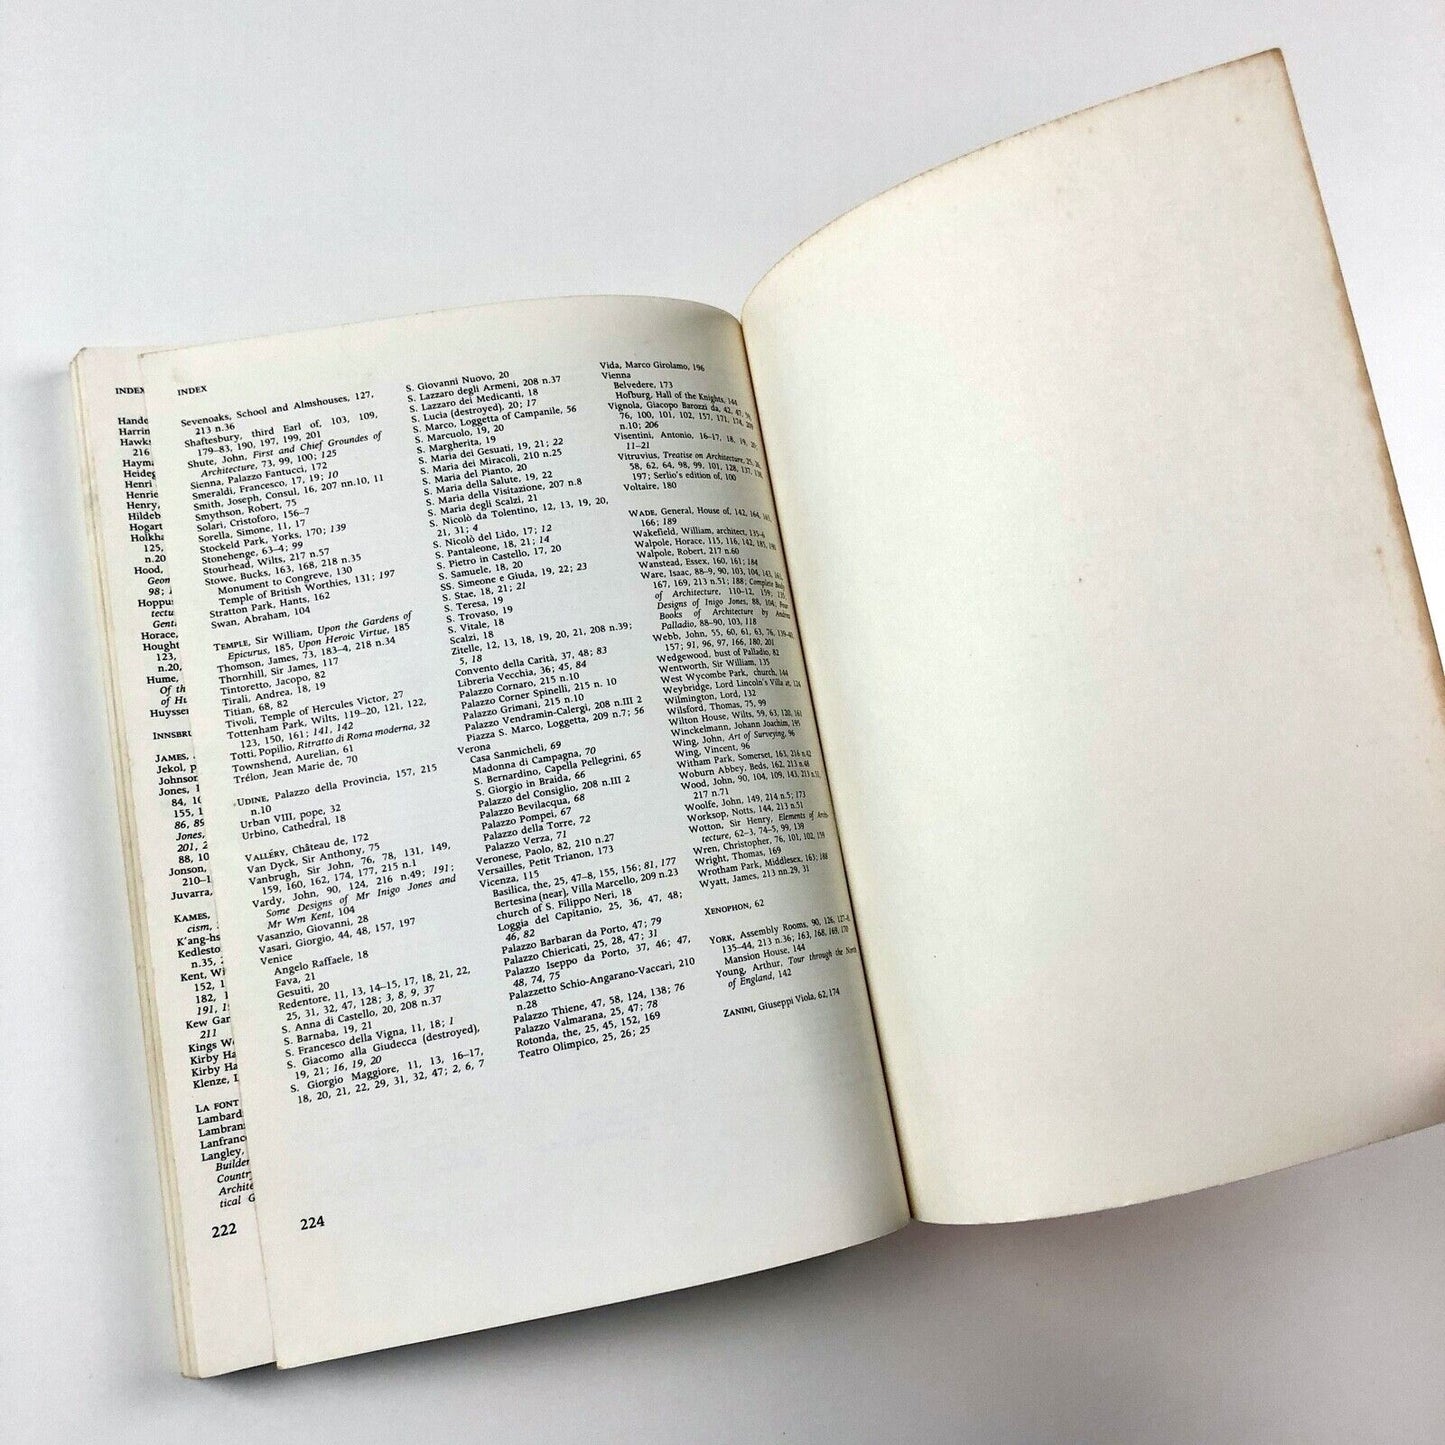 INDEX
Hande
Harrin
Hawks
216
Hayma
Heideg
Henri
Henrie
Henry,
Hildeb
Hogart
Holkha
125,
n.20
Hood,
Geon
98; 1
Hoppus
tectu
Gent
Horace,
Hought
123,
n.20,
Hume,
Of th
of Hu
Huysser
INNSBRU
JAMES,
Jekol, p
Johnson
Jones, 1
84, 10
155, 1
86, 89
Jones,
201, 2
88, 10
Jonson,
210–1
Juvarra,
KAMES,
cism,
K'ang-hs
Kedlesto
n.35, 2
Kent, Wi
152, 1
182, 1
191, 1
Kew Gar
211
Kings W
Kirby Ha
Kirby Ha
Klenze, L
LA FONT
Lambard
Lambran
Lanfranc
Langley,
Builder
Countr
Archite
tical G
222
INDEX
Sevenoaks, School and Almshouses, 127,
213 n.36
Shaftesbury, third Earl of, 103, 109,
179–83, 190, 197, 199, 201
Shute, John, First and Chief Groundes of
Architecture, 73, 99, 100; 125
Sienna, Palazzo Fantucci, 172
Smeraldi, Francesco, 17, 19; 10
Smith, Joseph, Consul, 16, 207 nn.10, 11
Smythson, Robert, 75
Solari, Cristoforo, 156–7
Sorella, Simone, 11, 17
Stockeld Park, Yorks, 170; 139
Stonehenge, 63–4; 99
Stourhead, Wilts, 217 n.57
Stowe, Bucks, 163, 168, 218 n.35
Monument to Congreve, 130
Temple of British Worthies, 131; 197
Stratton Park, Hants, 162
Swan, Abraham, 104
TEMPLE, Sir William, Upon the Gardens of
Epicurus, 185, Upon Heroic Virtue, 185
Thomson, James, 73, 183–4, 218 n.34
Thornhill, Sir James, 117
Tintoretto, Jacopo, 82
Tirali, Andrea, 18, 19
Titian, 68, 82
Tivoli, Temple of Hercules Victor, 27
Tottenham Park, Wilts, 119–20, 121, 122,
123, 150, 161; 141, 142
Totti, Popilio, Ritratto di Roma moderna, 32
Townshend, Aurelian, 61
Trélon, Jean Marie de, 70
UDINE, Palazzo della Provincia, 157, 215
n.10
Urban VIII, pope, 32
Urbino, Cathedral, 18
VALLÉRY, Château de, 172
Van Dyck, Sir Anthony, 75
Vanbrugh, Sir John, 76, 78, 131, 149,
159, 160, 162, 174, 177, 215 n.1
Vardy, John, 90, 124, 216 n.49; 191;
Some Designs of Mr Inigo Jones and
Mr Wm Kent, 104
Vasanzio, Giovanni, 28
Vasari, Giorgio, 44, 48, 157, 197
Venice
Angelo Raffaele, 18
Fava, 21
Gesuiti, 20
Redentore, 11, 13, 14–15, 17, 18, 21, 22,
25, 31, 32, 47, 128; 3, 8, 9, 37
S. Anna di Castello, 20, 208 n.37
S. Barnaba, 19, 21
S. Francesco della Vigna, 11, 18; 1
S. Giacomo alla Giudecca (destroyed),
19, 21; 16, 19, 20
S. Giorgio Maggiore, 11, 13, 16–17,
18, 20, 21, 22, 29, 31, 32, 47; 2, 6, 7
S. Giovanni Nuovo, 20
S. Lazzaro degli Armeni, 208 n.37
S. Lazzaro dei Medicanti, 18
S. Lucia (destroyed), 20; 17
S. Marco, Loggetta of Campanile, 56
S. Marcuolo, 19, 20
S. Margherita, 19
S. Maria dei Gesuati, 19, 21; 22
S. Maria dei Miracoli, 210 n.25
S. Maria del Pianto, 20
S. Maria della Salute, 19, 22
S. Maria della Visitazione, 207 n.8
S. Maria degli Scalzi, 21
S. Nicolò da Tolentino, 12, 13, 19, 20,
21, 31; 4
S. Nicolò del Lido, 17; 12
S. Pantaleone, 18, 21; 14
S. Pietro in Castello, 17, 20
S. Samuele, 18, 20
SS. Simeone e Giuda, 19, 22; 23
S. Stae, 18, 21; 21
S. Teresa, 19
S. Trovaso, 19
S. Vitale, 18
Scalzi, 18
Zitelle, 12, 13, 18, 19, 20, 21, 208 n.39;
5, 18
Convento della Carità, 37, 48; 83
Libreria Vecchia, 36; 45, 84
Palazzo Cornaro, 215 n.10
Palazzo Corner Spinelli, 215 n. 10
Palazzo Grimani, 215 n.10
Palazzo Vendramin-Calergi, 208 n.III 2
Piazza S. Marco, Loggetta, 209 n.7; 56
Verona
Casa Sanmicheli, 69
Madonna di Campagna, 70
S. Bernardino, Capella Pellegrini, 65
S. Giorgio in Braida, 66
Palazzo del Consiglio, 208 n.III 2
Palazzo Bevilacqua, 68
Palazzo Pompei, 67
Palazzo della Torre, 72
Palazzo Verza, 71
Veronese, Paolo, 82, 210 n.27
Versailles, Petit Trianon, 173
Vicenza, 115
Basilica, the, 25, 47–8, 155, 156; 81, 177
Bertesina (near), Villa Marcello, 209 n.23
church of S. Filippo Neri, 18
Loggia del Capitanio, 25, 36, 47, 48;
46, 82
Palazzo Barbaran da Porto, 47; 79
Palazzo Chiericati, 25, 28, 47; 31
Palazzo Iseppo da Porto, 37, 46; 47,
48, 74, 75
Palazzetto Schio-Angarano-Vaccari, 210
n.28
Palazzo Thiene, 47, 58, 124, 138; 76
Palazzo Valmarana, 25, 47; 78
Rotonda, the, 25, 45, 152, 169
Teatro Olimpico, 25, 26; 25
Vida, Marco Girolamo, 196
Vienna
Belvedere, 173
Hofburg, Hall of the Knights, 144
Vignola, Giacopo Barozzi da, 42, 47, 56,
76, 100, 101, 102, 157, 171, 174, 209
n.10; 206
Visentini, Antonio, 16–17, 18, 19, 20;
11–21
Vitruvius, Treatise on Architecture, 25,
58, 62, 64, 98, 99, 101, 128, 137, 138,
197; Serlio's edition of, 100
Voltaire, 180
WADE, General, House of, 142, 164, 165,
166; 189
Wakefield, William, architect, 135–6
Walpole, Horace, 115, 116, 142, 185, 190
Walpole, Robert, 217 n.60
Wanstead, Essex, 160, 161; 184
Ware, Isaac, 88–9, 90, 103, 104, 143, 161,
167, 169, 213 n.51; 188; Complete Body
of Architecture, 110–12, 159; 135
Designs of Inigo Jones, 88, 104; Four
Books of Architecture by Andrea
Palladio, 88–90, 103, 118
Webb, John, 55, 60, 61, 63, 76, 139–40,
157; 91, 96, 97, 166, 180, 201
Wedgewood, bust of Palladio, 82
Wentworth, Sir William, 135
West Wycombe Park, church, 144
Weybridge, Lord Lincoln's Villa at, 124
Wilmington, Lord, 132
Wilsford, Thomas, 75, 99
Wilton House, Wilts, 59, 63, 120, 161
Winckelmann, Johann Joachim, 195
Wing, John, Art of Surveying, 96
Wing, Vincent, 96
Witham Park, Somerset, 163, 216 n.42
Woburn Abbey, Beds, 162, 213 n.48
Wood, John, 90, 104, 109, 143, 213 n.51,
217 n.71
Woolfe, John, 149, 214 n.5; 173
Worksop, Notts, 144, 213 n.51
Wotton, Sir Henry, Elements of Archi-
tecture, 62–3, 74–5, 99, 139
Wren, Christopher, 76, 101, 102, 159
Wright, Thomas, 169
Wrotham Park, Middlesex, 163; 188
Wyatt, James, 213 nn.29, 31
XENOPHON, 62
YORK, Assembly Rooms, 90, 126, 127–8,
135–44, 213 n.36; 163, 168, 169, 170
Mansion House, 144
Young, Arthur, Tour through the North
of England, 142
ZANINI, Giuseppi Viola, 62, 174
224